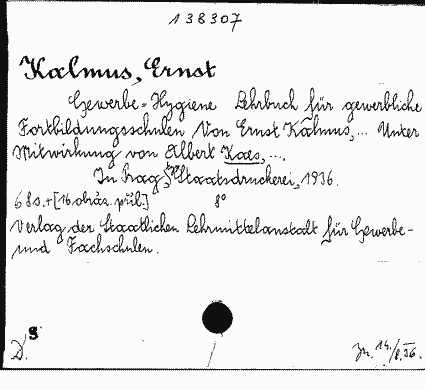 138307
Kalmus, Ernst
Gewerbe-Hygiene Lehrbuch für gewerbliche
Fortbildungsschulen Von Ernst Kalmus,... Unter
Mitwirkung von Albert Kaes,....
In Prag, Staatsdruckerei, 1936.
68s.+[16 obráz. příl.] 8°
Verlag der Staatlichen Lehrmittelanstalt für Gewerbe-
und Fachschulen.
S
D.
14./8.36.